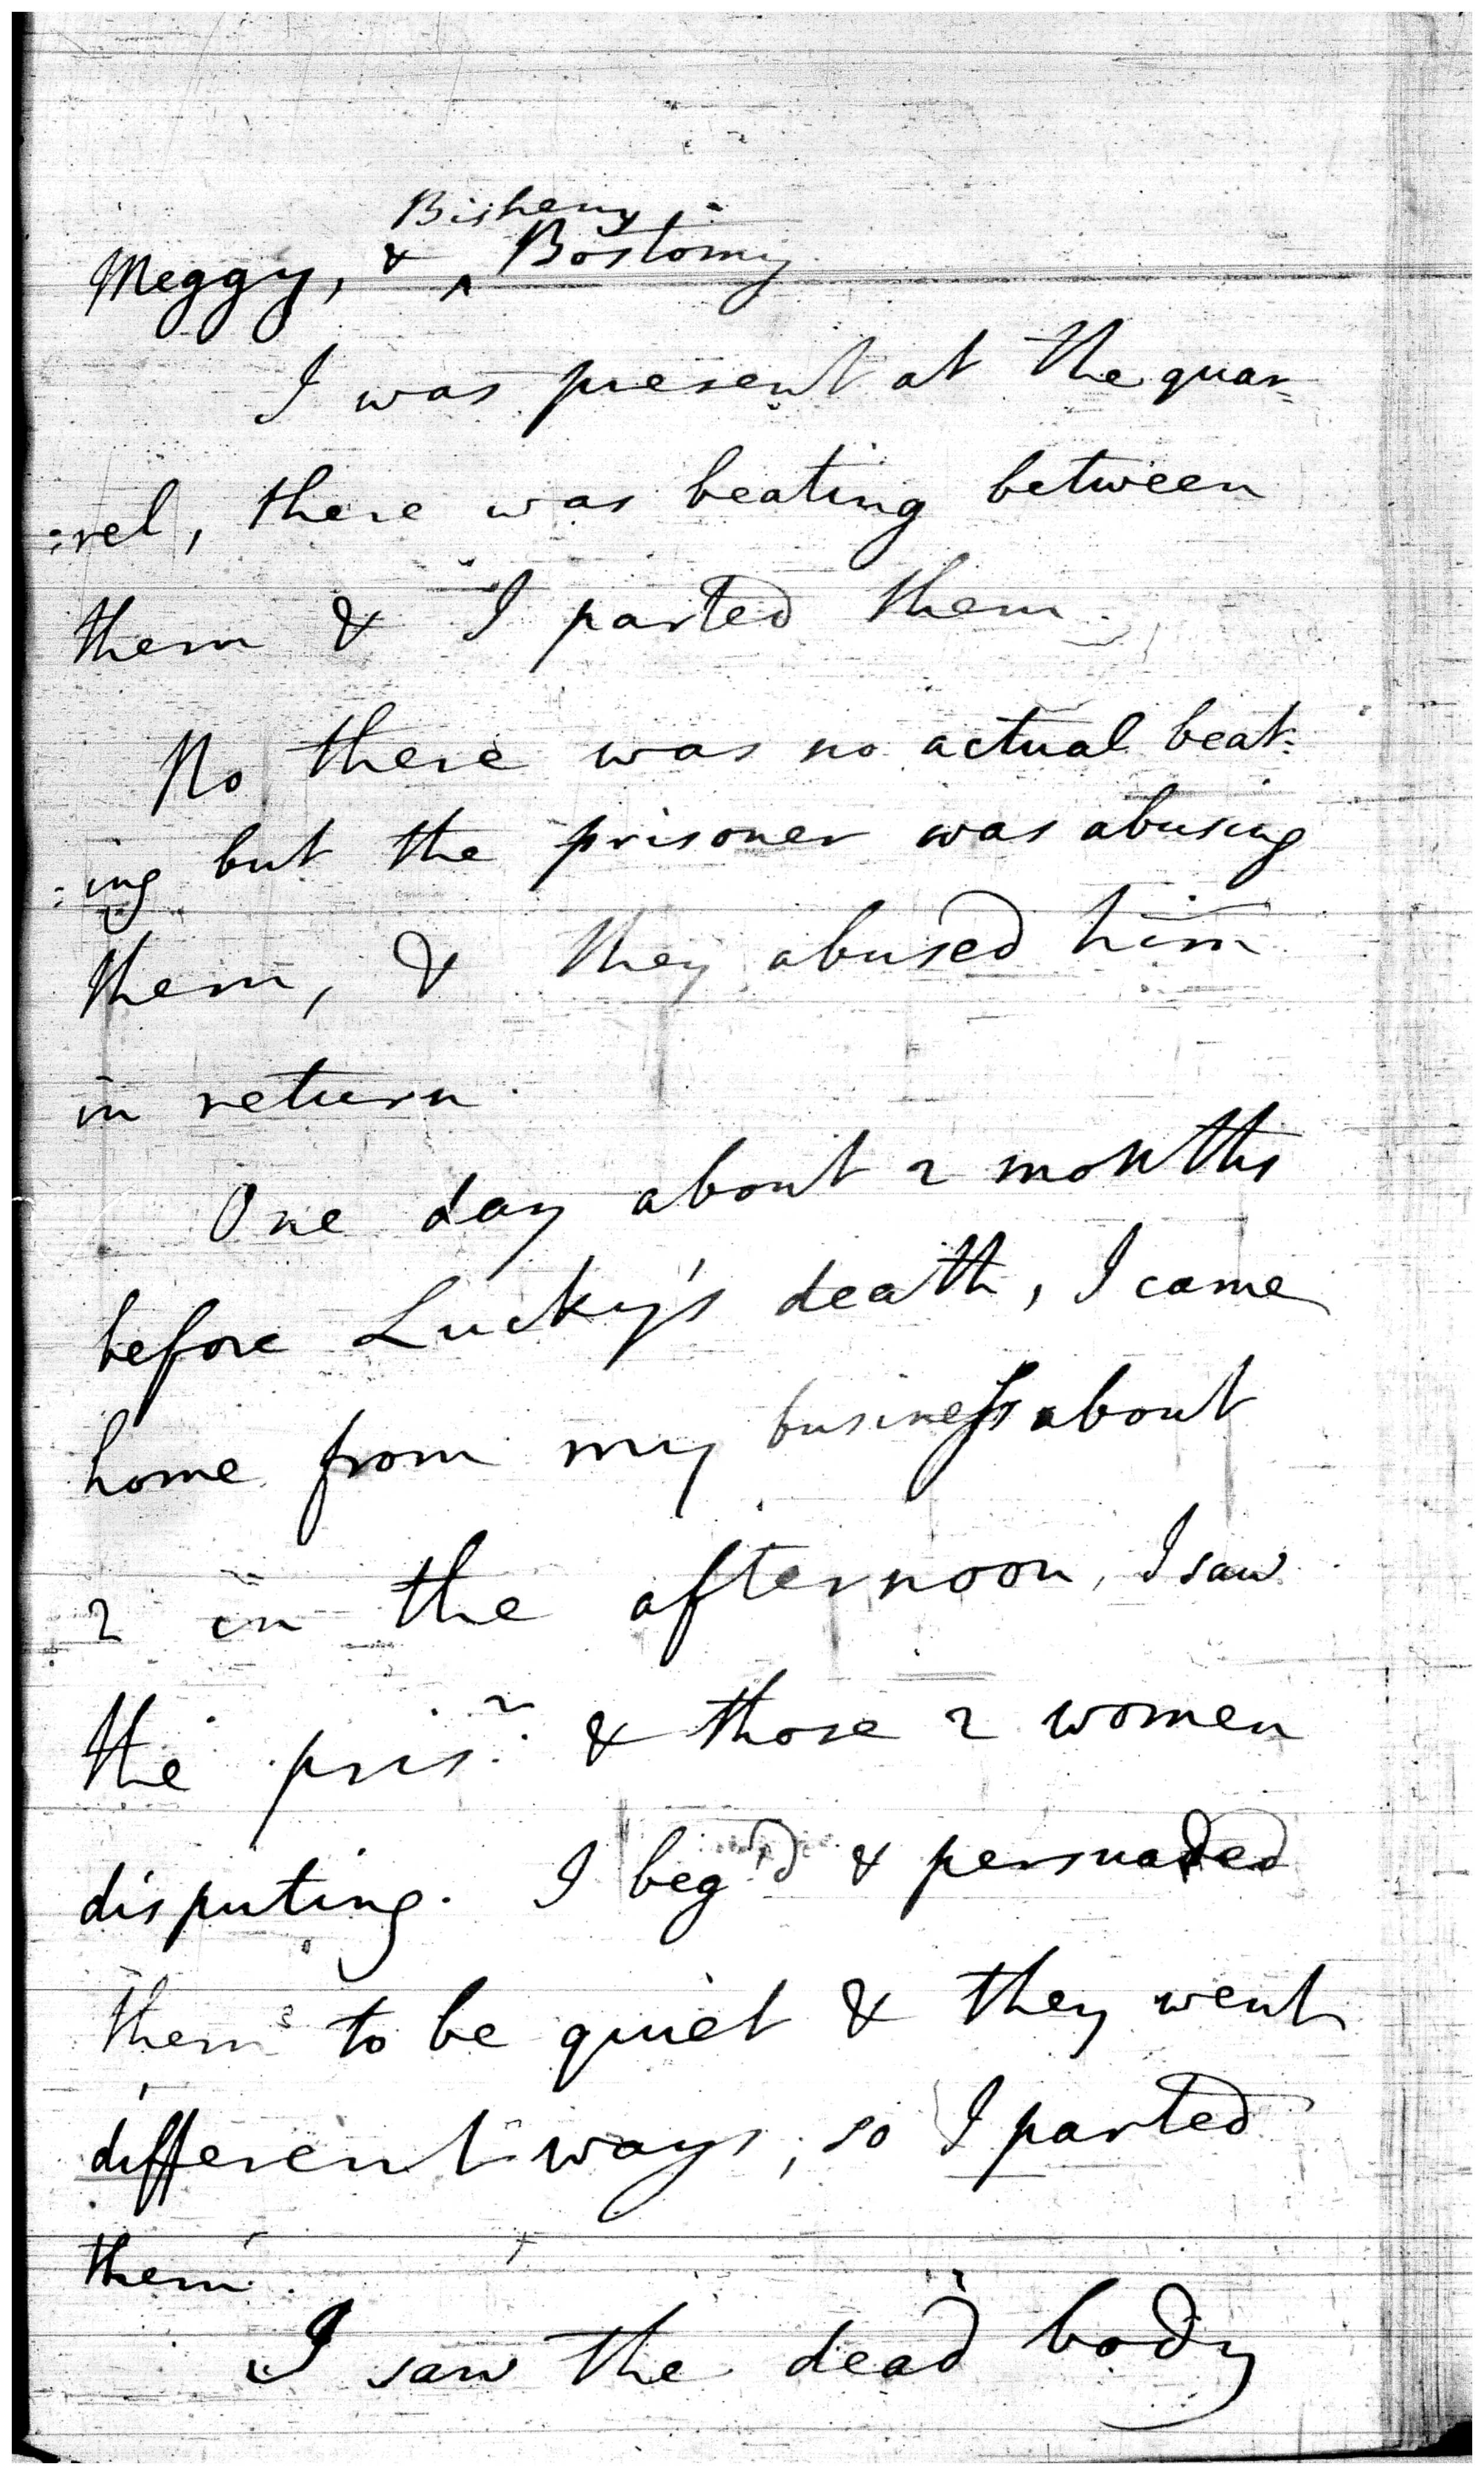 Bisheny
Meggy, & ^ Bostomy
I was present at the quar=
=rel, there was beating between
them & I parted them.
No there was no actual beat=
=ing but the prisoner was abusing
them, & they abused him
in return.
One day about 2 months
before Lucky's death, I came
home from my business about
2 in the afternoon, I saw
the pris.r & those 2 women
disputing. I beg'd & persuaded
them to be quiet & they went
different ways, so I parted
them.
I saw the dead body